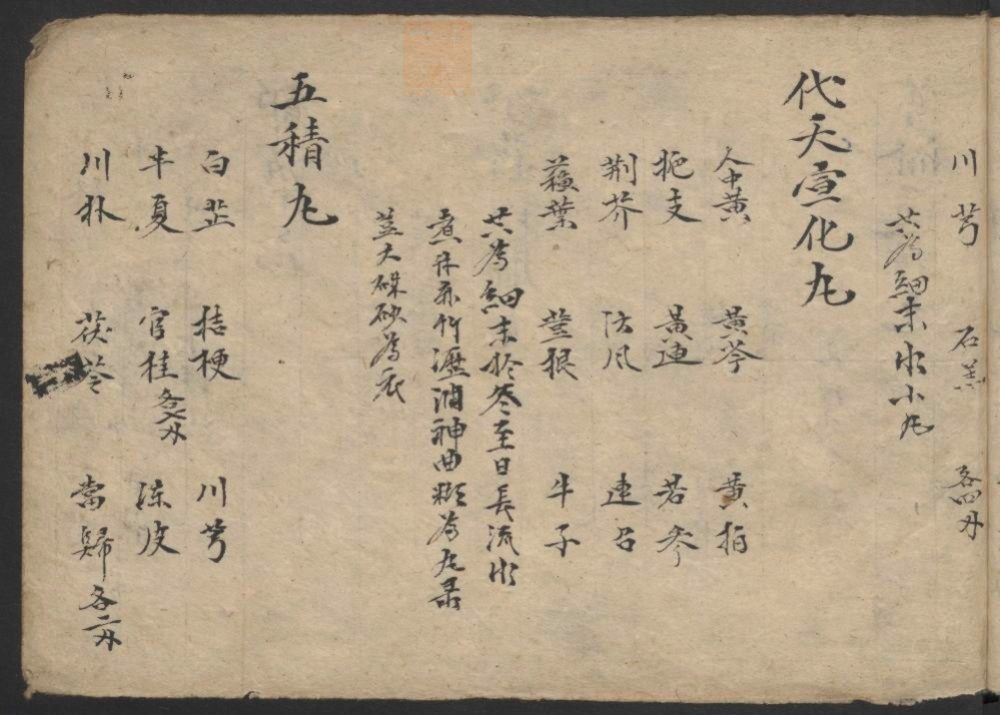 川芎 石羔 各四分
共為細末水小丸
代天宣化丸
人中黄 黄芩 黄柏
栀支 黄連 苦参
荆芥 防風 連召
蘓葉 牛子
共為細末於冬至日長流水
煮 竹瀝 神曲糊為丸
大硃砂為衣
五積丸
白芷 桔梗 川芎
半夏 官桂 陳皮
川朴 茯苓 當歸 各二分